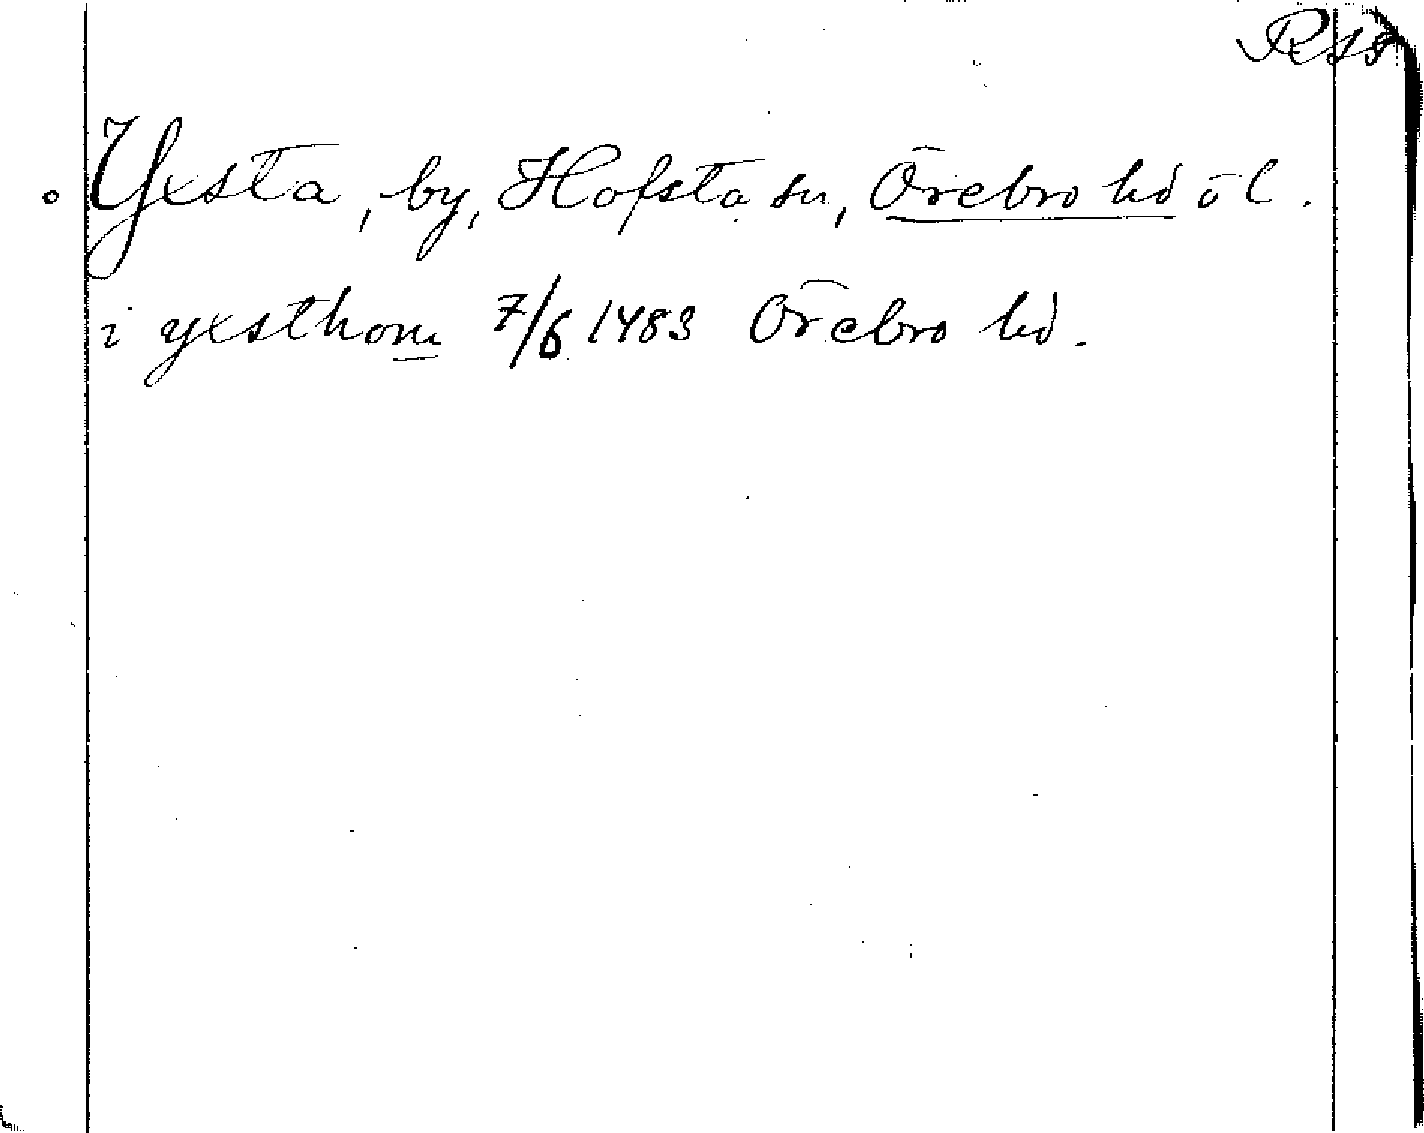 Rss
Yxsta, by, Hofsta sn, Örebro hd ö l.
i yxsthom 7/6 1483 Örebro hd.